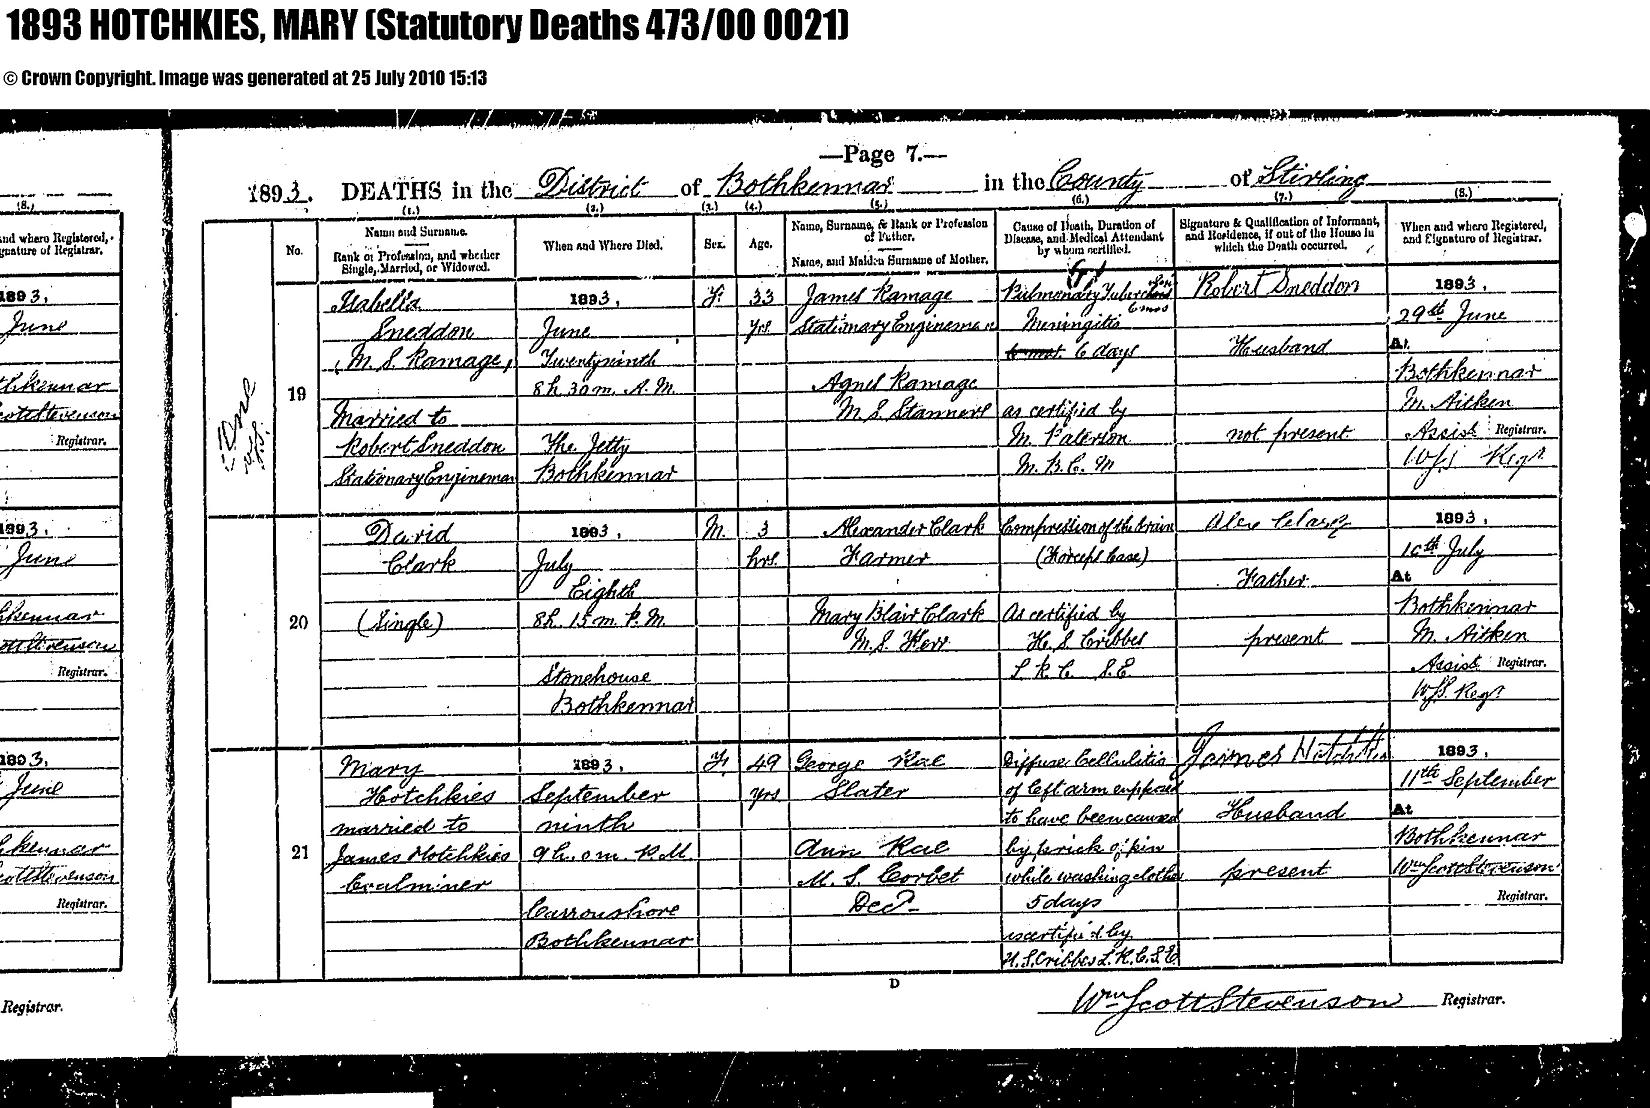 1893 HOTCHKIES, MARY (Statutory Deaths 473/00 0021)
© Crown Copyright. Image was generated at 25 July 2010 15:13
—Page 7.—
1893. DEATHS in the District of Bothkennar in the County of Stirling
(8.)
(1.) (2.) (3.) (4.) (5.) (6.) (7.) (8.)
and where Registered,
gnature of Registrar.
No.
Name and Surname.
Rank or Profession, and whether
Single, Married, or Widowed.
When and Where Died.
Sex.
Age.
Name, Surname, & Rank or Profession
of Father.
Name, and Maiden Surname of Mother.
Cause of Death, Duration of
Disease, and Medical Attendant
by whom certified.
Signature & Qualification of Informant,
and Residence, if out of the House in
which the Death occurred.
When and where Registered,
and Signature of Registrar.
1893,
June
thkennar
cottStevenson
Registrar.
19
Isabella
Sneddon
(M. S. Ramage)
Married to
Robert Sneddon
Stationary Engineman
1893,
June
Twentyninth
8h. 30m. A.M.
The Jetty
Bothkennar
F.
33
yrs
James Ramage
Stationary Engineman
Agnes Ramage
M.S. Stanners
Pulmonary
6 mos
Meningitis
6 days
as certified by
M. Paterson
M.B.C.M
Robert Sneddon
Husband
not present
1893,
29th June
At
Bothkennar
M. Aitken
Assist Registrar.
WSS Regr.
1893,
June
hkennar
ottStevenson
Registrar.
20
David
Clark
(Single)
1893,
July
Eighth
8h. 15m. P.M.
Stonehouse
Bothkennar
M.
3
hrs.
Alexander Clark
Farmer
Mary Blair Clark
M.S. Kerr
Compression of the brain
(Forceps Case)
As certified by
H. S. Cribbes
L.R.C.S.E.
Alex Clark
Father
present
1893,
10th July
At
Bothkennar
M. Aitken
Assist Registrar.
WSS. Regr.
1893,
June
hkennar
cottStevenson
Registrar.
21
Mary
Hotchkies
married to
James Hotchkies
Coalminer
1893,
September
ninth
9h. 0m. P.M.
Carronshore
Bothkennar
F.
49
yrs
George Rae
Slater
Ann Rae
M. S. Corbet
Decd.
Diffuse Cellulitis
of left arm supposed
to have been caused
by prick of pin
while washing clothes
5 days
as certified by
H.S. Cribbes L.R.C.S.E.
James Hotchkies
Husband
present
1893,
11th September
At
Bothkennar
Wm Scott Stevenson
Registrar.
D
Registrar.
Wm Scott Stevenson Registrar.